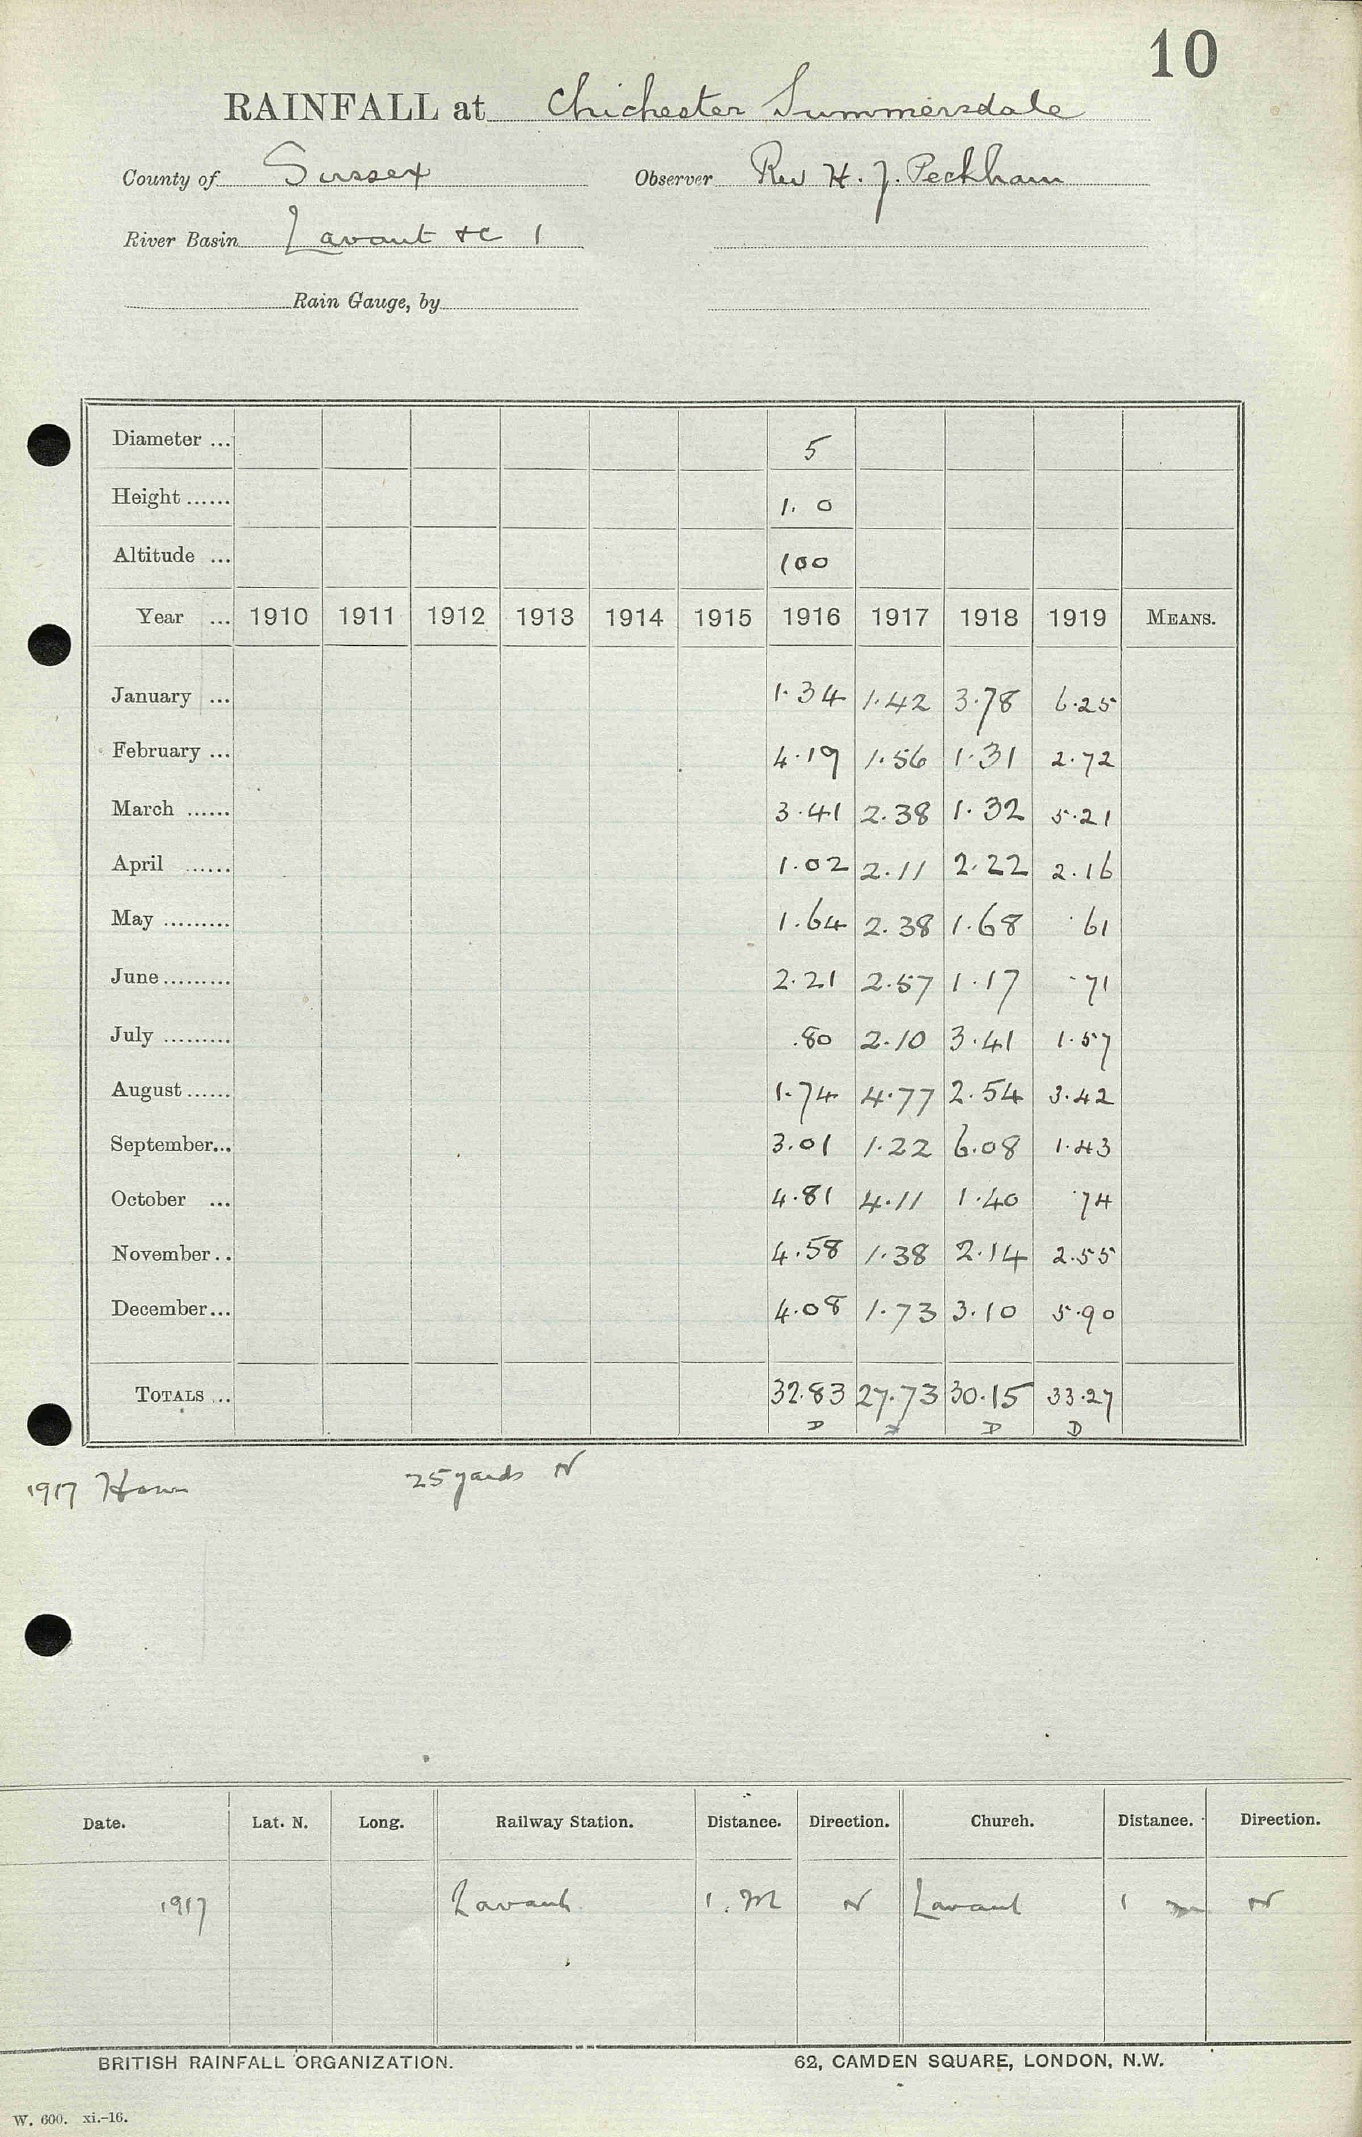 10
RAINFALL at Chichester Summersdale
County of Sussex Observer Rev H. J. Peckham
River Basin Lavant &c 1
Rain Gauge, by
Diameter ... 5
Height ...... 1. 0
Altitude ... 100
Year ... 1910 1911 1912 1913 1914 1915 1916 1917 1918 1919 MEANS.
January ... 1.34 1.42 3.78 6.25
February ... 4.19 1.56 1.31 2.72
March ...... 3.41 2.38 1.32 5.21
April ...... 1.02 2.11 2.22 2.16
May ......... 1.64 2.38 1.68 .61
June ......... 2.21 2.57 1.17 .71
July ......... .80 2.10 3.41 1.57
August ...... 1.74 4.77 2.54 3.42
September... 3.01 1.22 6.08 1.43
October ... 4.81 4.11 1.40 .74
November .. 4.58 1.38 2.14 2.55
December... 4.08 1.73 3.10 5.90
TOTALS ... 32.83 27.73 30.15 33.27
D D D
1917 25 yards N
Date. Lat. N. Long. Railway Station. Distance. Direction. Church. Distance. Direction.
1917 Lavant 1. M N Lavant 1 m N
BRITISH RAINFALL ORGANIZATION. 62, CAMDEN SQUARE, LONDON, N.W.
W. 600. xi.-16.